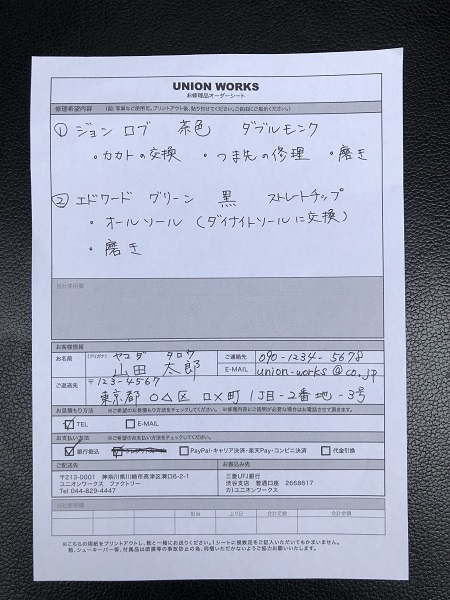 UNION WORKS
お修理品オーダーシート
修理希望内容
① ジョン ロブ 茶色 ダブルモンク
・カカトの交換 ・つま先の修理 ・磨き
② エドワード グリーン 黒 ストレートチップ
・オールソール (ダイナイトソールに交換)
・磨き
当社使用欄
お客様情報
お名前 (フリガナ) ヤマダ タロウ
山田 太郎
ご連絡先 090-1234-5678
E-MAIL union-works@co.jp
ご返送先 〒123-4567
東京都 ○△区 ロ×町 1丁目-2番地-3号
お見積もり方法 ※ご希望のお見積もり方法をチェックしてください。 ※修理内容にご質問が必要な場合はお電話させて頂きます。
TEL E-MAIL
お支払い方法 ※ご希望のお支払い方法をチェックしてください。
銀行振込 クレジットカード PayPal・キャリア決済・楽天Pay・コンビニ決済 代金引換
ご配送先 お振込み先
〒213-0001 神奈川県川崎市高津区溝口6-2-1
ユニオンワークス ファクトリー
Tel 044-829-4447
三菱UFJ銀行
渋谷支店 普通口座 2668617
カ)ユニオンワークス
当社使用欄
担当 上り日 合計金額
※こちらの用紙をプリントアウトし、靴と一緒にお送りください。1シートに複数足をご記入いただいてもかまいません。
箱、シューキーパー等、付属品は破損等の事故防止の為、同梱いただかないようご協力お願いいたします。